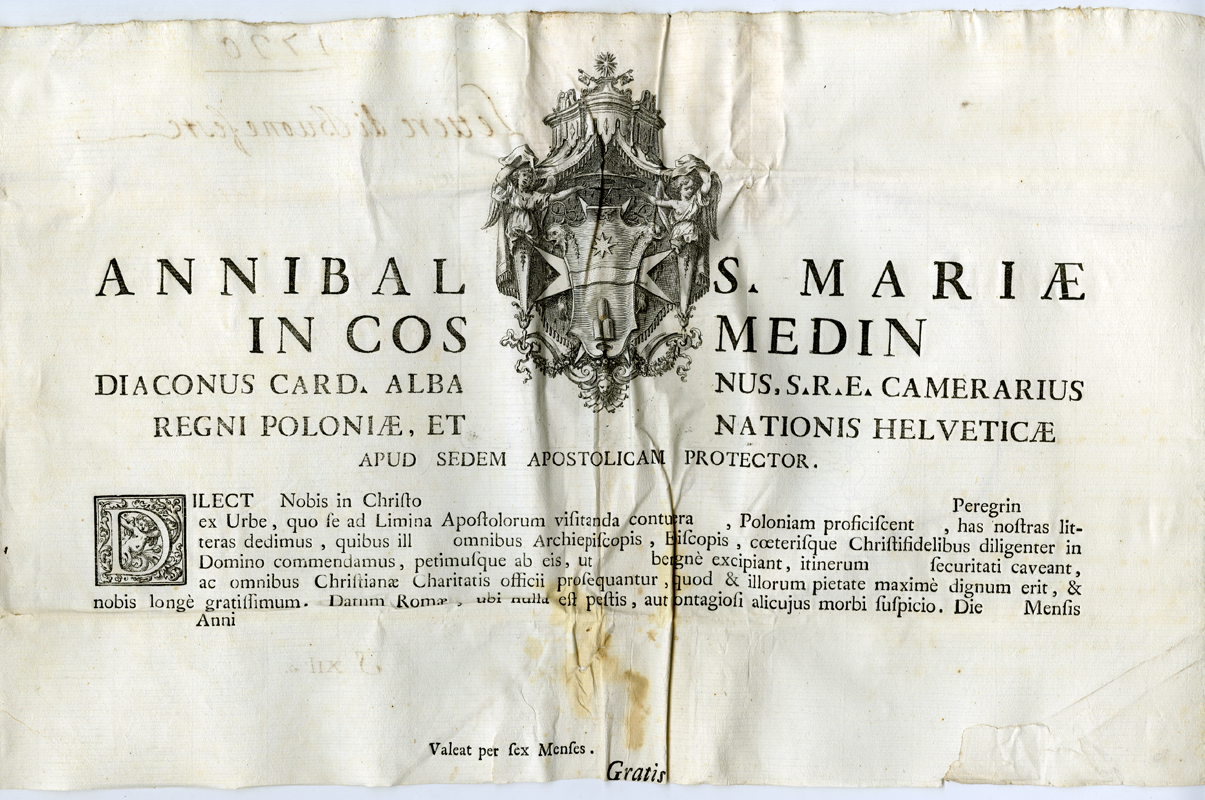 1770
Lettere di Buone feste
ANNIBAL S. MARIÆ
IN COS MEDIN
DIACONUS CARD. ALBA NUS, S.R.E. CAMERARIUS
REGNI POLONIÆ, ET NATIONIS HELVETICÆ
APUD SEDEM APOSTOLICAM PROTECTOR.
DILECT Nobis in Chriſto Peregrin
ex Urbe, quo ſe ad Limina Apoſtolorum viſitanda contuera , Poloniam proficiſcent , has noſtras lit-
teras dedimus, quibus ill omnibus Archiepiſcopis, Epiſcopis, cœteriſque Chriſtifidelibus diligenter in
Domino commendamus, petimuſque ab eis, ut benignè excipiant, itinerum ſecuritati caveant,
ac omnibus Chriſtianæ Charitatis officii proſequantur, quod & illorum pietate maximè dignum erit, &
nobis longè gratiſſimum. Datum Romæ, ubi nulla eſt peſtis, aut ontagioſi alicujus morbi ſuſpicio. Die Menſis
Anni
XII
Valeat per ſex Menſes.
Gratis